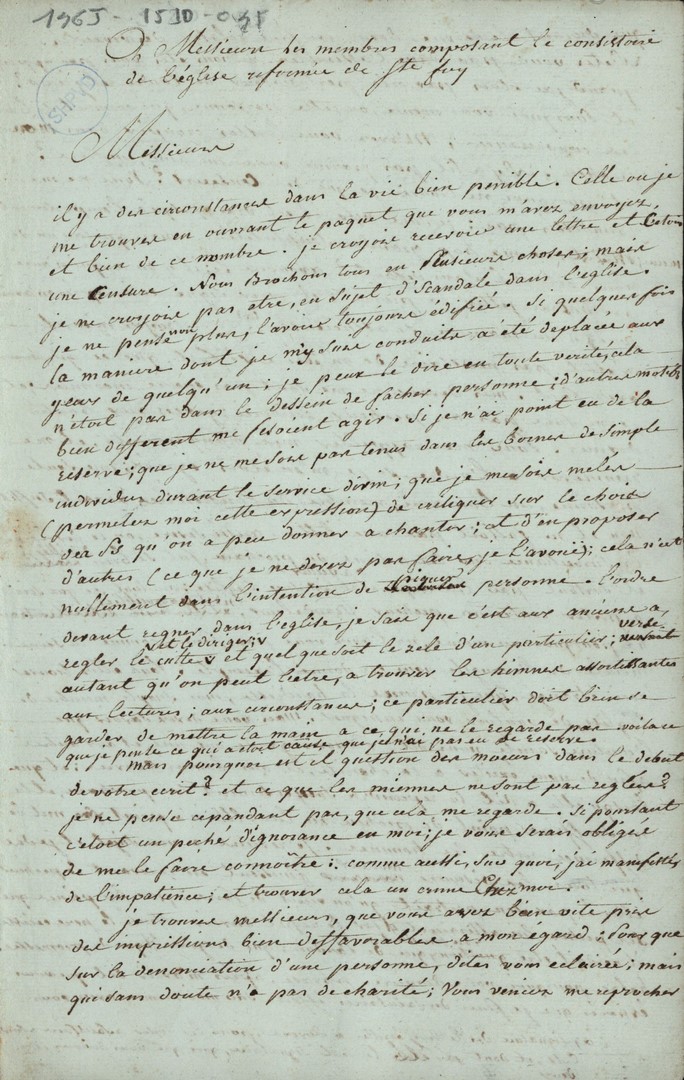 1965 - 1510 - 095
SHPVD
A Messieure les membres composant le consistoire
de l'église reformée de Ste foy
Messieure
il y a des circonstances dans la vie bien penible. Celle ou je
me trouves en ouvrant le paquet que vous m'avez envoyez
et bien de ce nombre. je croyois recevoir une lettre et C'etoit
une Censure. Nous Brochons tous en Plusieurs choses; mais
je ne croyois pas etre, en sujet d'Scandale dans l'eglise.
je ne pense non plus, l'avoir toujours édifiée. Si quelques fois
la maniere dont je m'y suis conduite a eté deplacée aux
yeux de quelqu'un; je peux le dire en toute verité, cela
n'etoit pas dans le dessein de facher personne; d'autres motifs
bien different me fesoient agir. Si je n'ai point eu de la
réserve; que je ne me sois pas tenus dans les bornes de simple
individus durant le service divin; que je me sois melée
(permetez moi cette expression) de critiquer sur le choix
des Ps qu'on a peu donner a chanter; et d'en proposer
d'autres (ce que je ne devois pas faire, je l'avoüe); cela n'est
nullement dans l'intention de piquer personne. l'ordre
devant regner dans l'eglise, je sais que c'est aux anciens a
regler le culte et le diriger; et quel que soit le zele d'un particulier; versé
autant qu'on peut l'etre, a trouver les himnes assortissantes
aux lectures; aux circonstances; ce particulier doit bien se
garder de mettre la main a ce qui ne le regarde pas. voila ce
que je pense ce qui a etoit cause que je n'ai pas eu de reserve.
mais pourquoi est il question des moeurs dans le debut
de votre ecrit? et ce que les miennes ne sont pas reglées?
je ne pense cepandant pas, que cela me regarde. Si pourtant
c'etoit un peché d'ignorance en moi; je vous serais obligée
de me le faire connoître: comme aussi, sur quoi, j'ai manifestés
de l'impatience; et trouver cela un crime Chez moi.
je trouves messieurs, que vous avez bien vite pris
des impressions bien deffavorables a mon egard; Puis que
sur la denonciation d'une personne, dites vous eclairée; mais
qui sans doute n'a pas de charité; Vous venez me reprocher